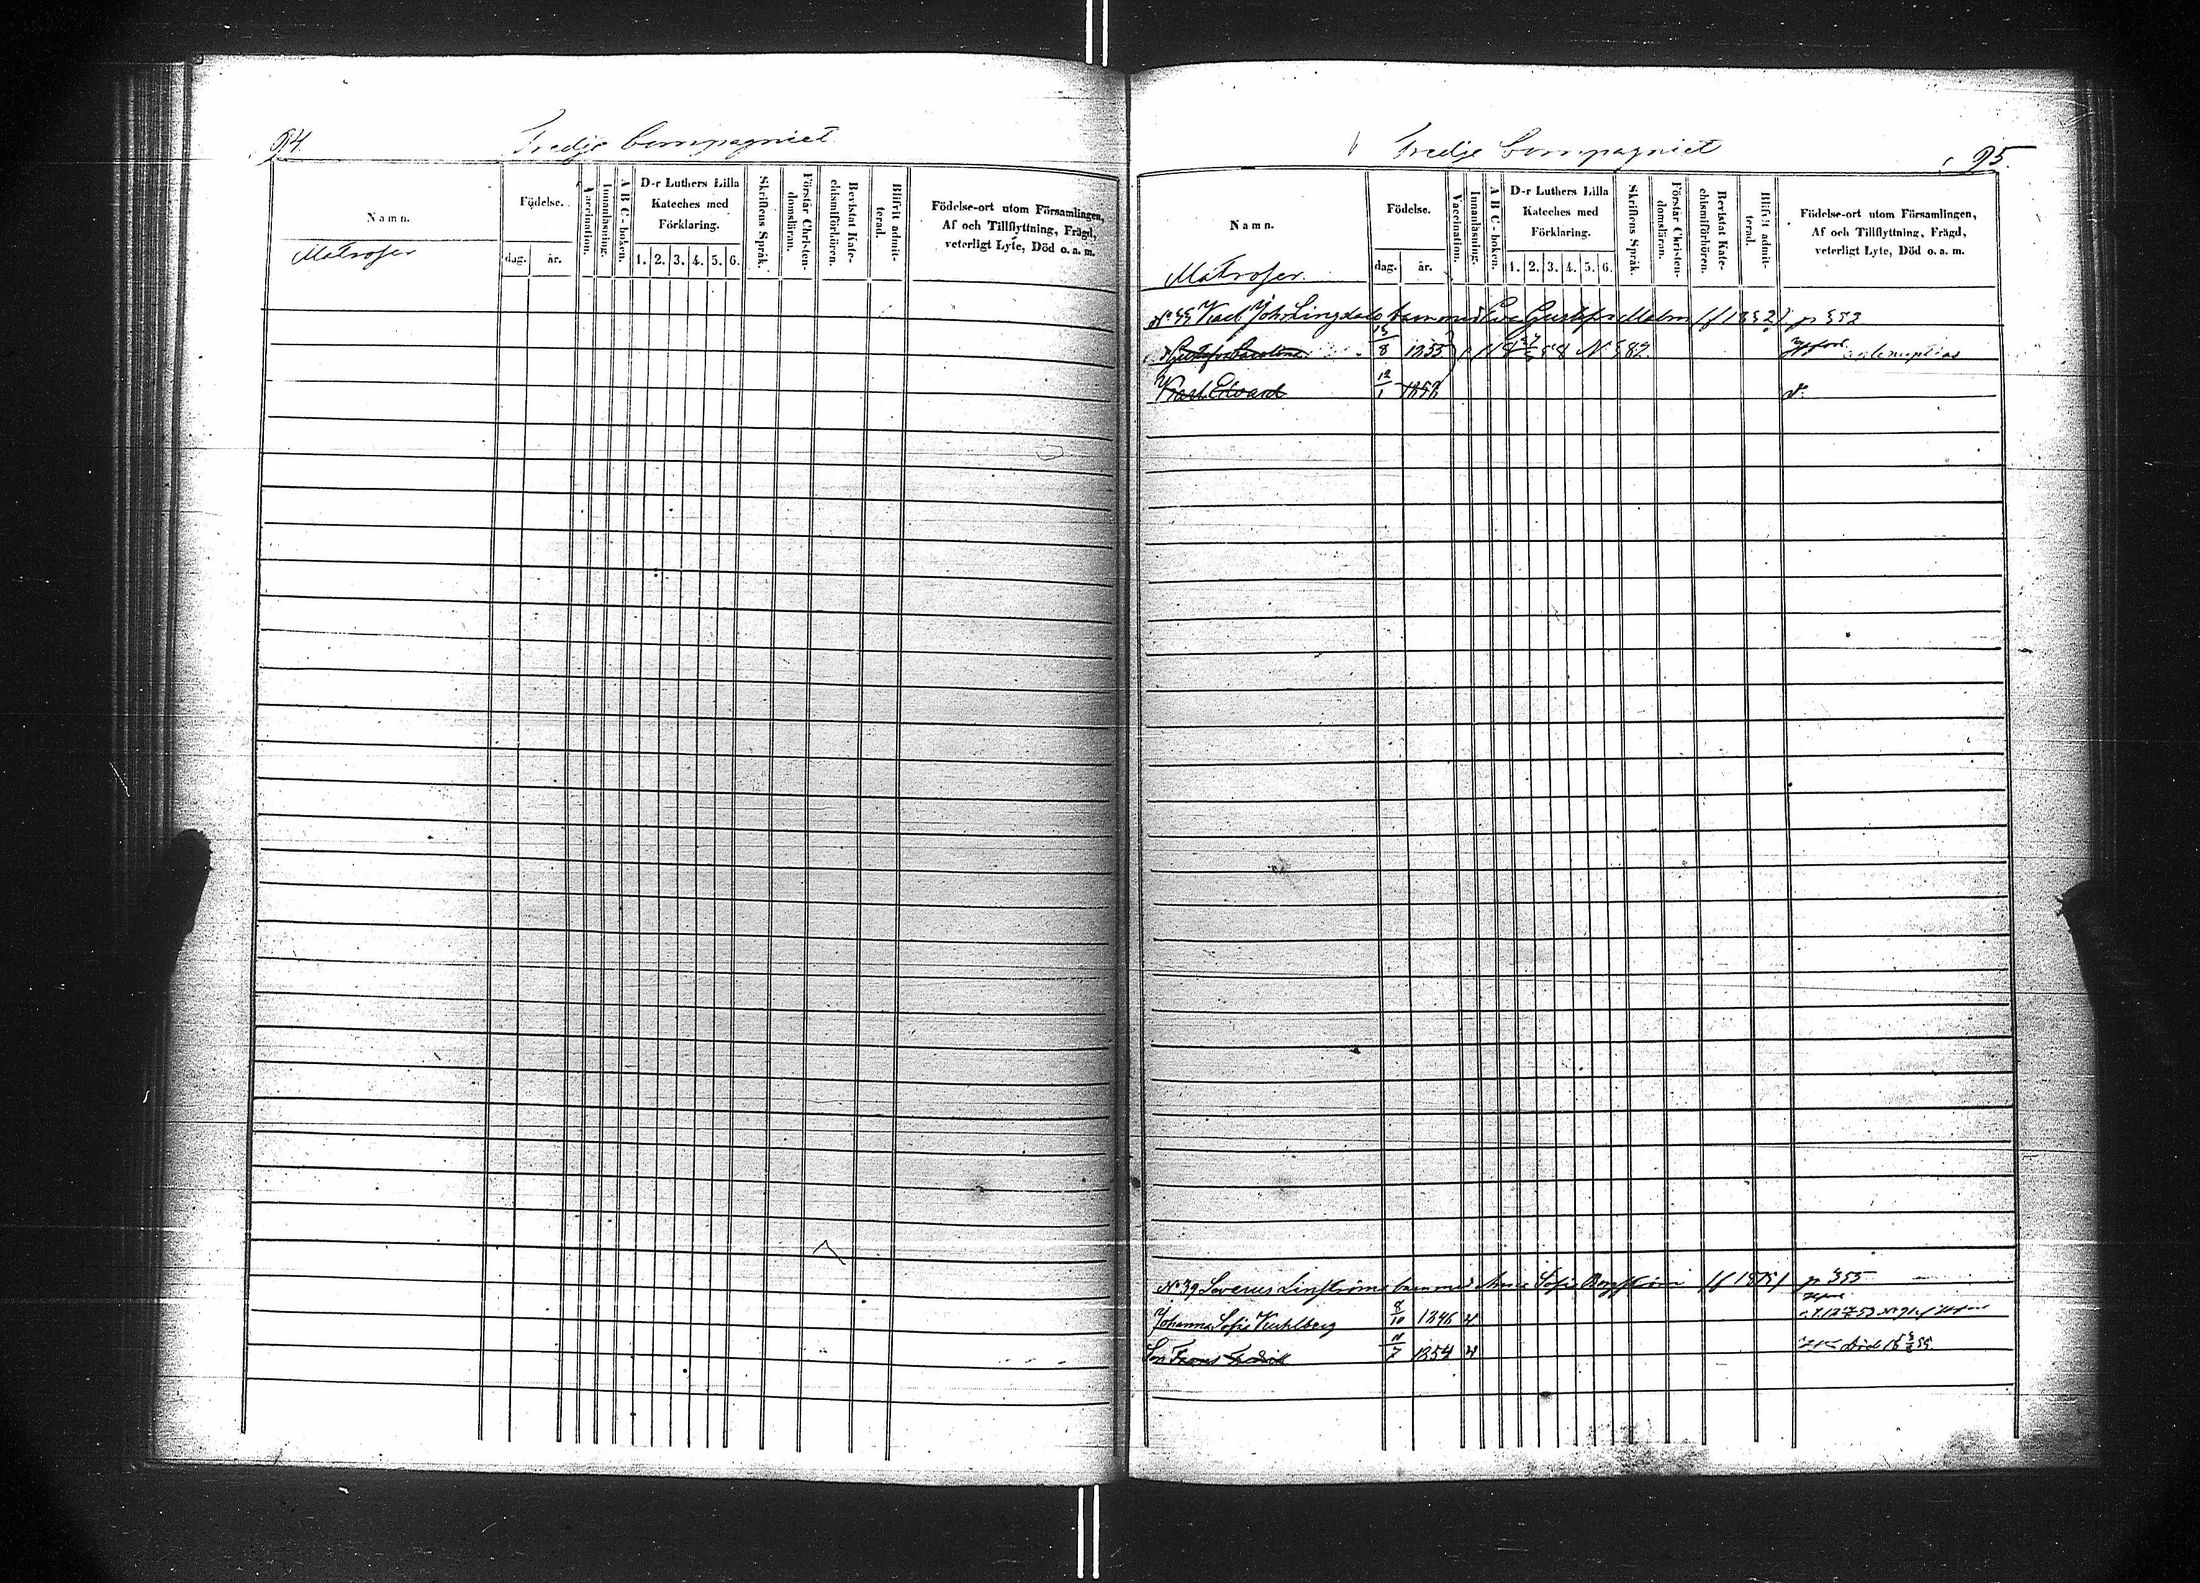 94.
Tredje Compagniet
Namn.
Matroser
Födelse.
dag.
år.
Vaccination.
Innanläsning.
A B C - boken.
D-r Luthers Lilla
Kateches med
Förklaring.
1. 2. 3. 4. 5. 6.
Skriftens Språk.
Förstår Christen-
domsläran.
Bevistat Kate-
chismiförhören.
Blifvit admit-
terad.
Födelse-ort utom Församlingen,
Af och Tillflyttning, Frägd,
veterligt Lyte, Död o. a. m.
Tredje Compagniet
95.
Namn.
Matroser.
Födelse.
dag.
år.
Vaccination.
Innanläsning.
A B C - boken.
D-r Luthers Lilla
Kateches med
Förklaring.
1. 2. 3. 4. 5. 6.
Skriftens Språk.
Förstår Christen-
domsläran.
Bevistat Kate-
chismiförhören.
Blifvit admit-
terad.
Födelse-ort utom Församlingen,
Af och Tillflyttning, Frägd,
veterligt Lyte, Död o. a. m.
Karl Joh. Lingdals barn med Eva Malm
15/8 1855
Karl Edvard 12/1 1858 d:o
No 39 Severus Linströms barn med Anna Sofia Bergström
Johanna Sofie Kuhlberg 8/10 1846
Son Frans Fredrik 11/7 1854 död